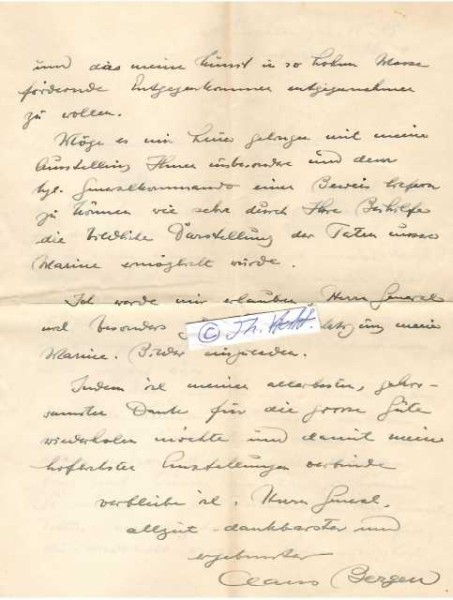 und das meine Kunst in so hohem Masse
fördernde Entgegenkommen entgegennehmen
zu wollen.
Möge es mir heuer gelingen mit meiner
Ausstellung Ihnen insbesondere und dem
kgl. Generalkommando einen Beweis liefern
zu können wie sehr durch Ihre Beihilfe
die bildliche Darstellung der Taten unserer
Marine ermöglicht wurde.
Ich werde mir erlauben, Herrn General
noch besonders zur meiner
© Th. Heidt.
Marine-Bilder einzuladen.
Indem ich meinen allerbesten, gehor-
samsten Dank für die grosse Güte
wiederholen möchte und damit meine
höflichsten Empfehlungen verbinde
verbleibe ich, Herrn General,
allzeit dankbarster und
ergebenster
Claus Bergen